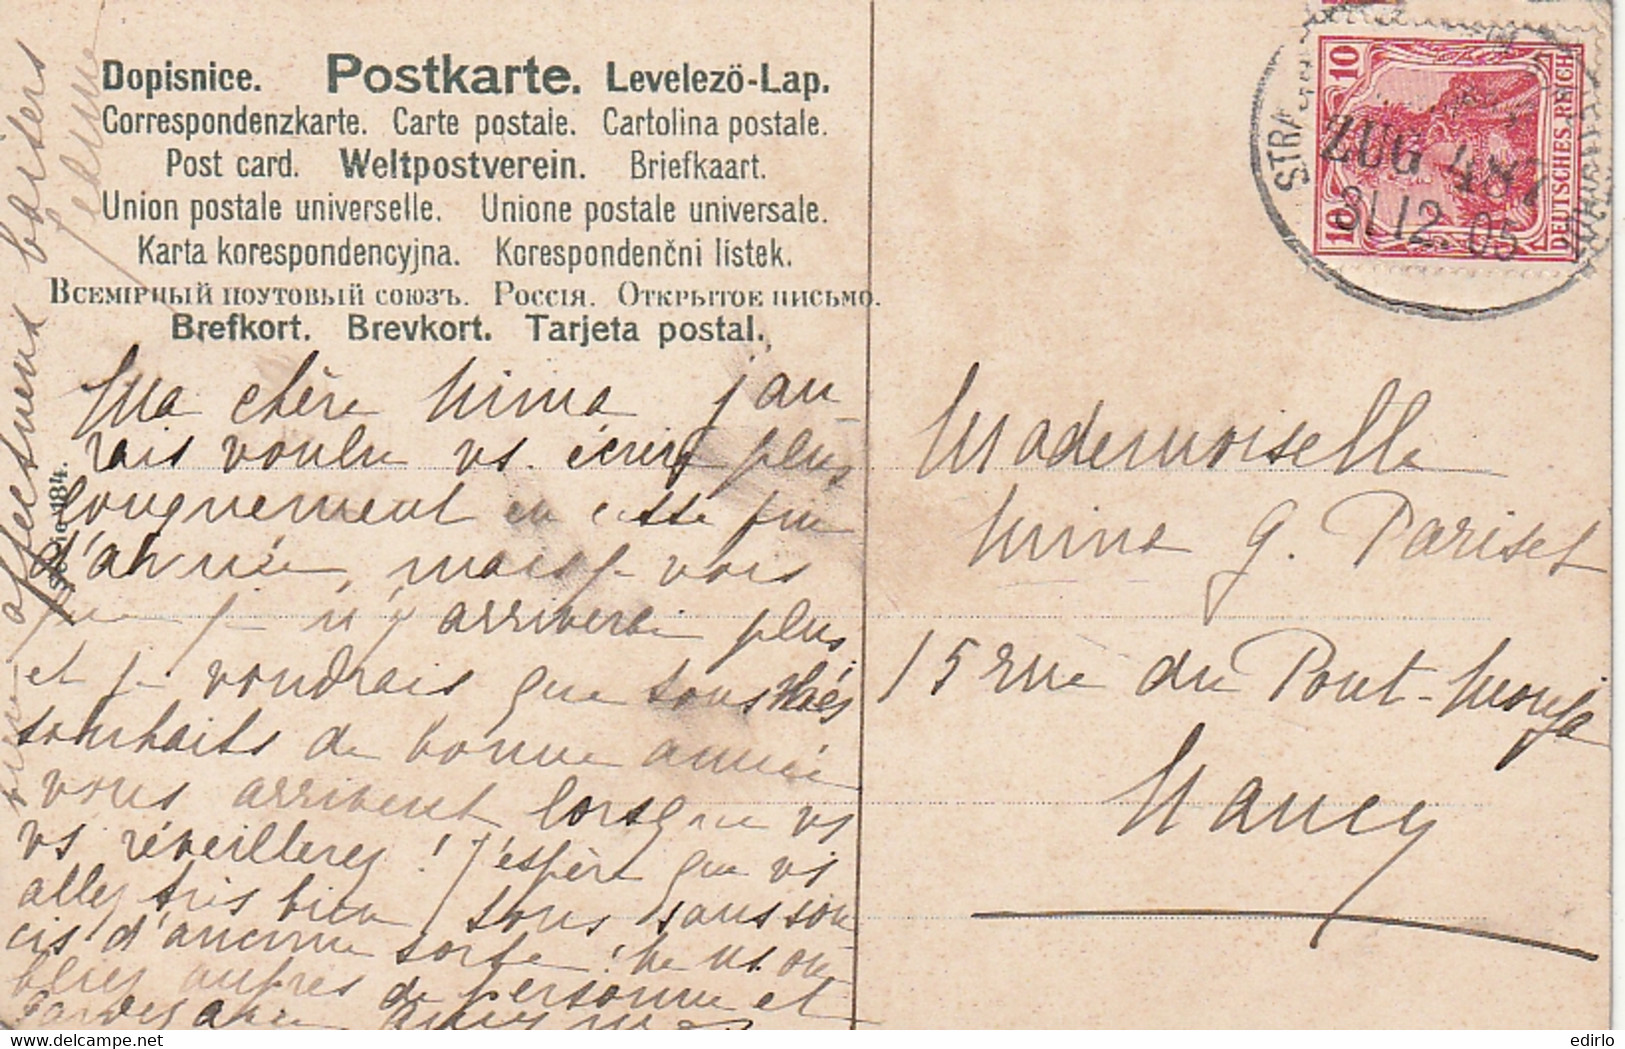 Dopisnice. Postkarte. Levelező-Lap.
Correspondenzkarte. Carte postale. Cartolina postale.
Post card. Weltpostverein. Briefkaart.
Union postale universelle. Unione postale universale.
Karta korespondencyjna. Korespondenčni listek.
Всемірный поутовый союзъ. Россія. Открытое письмо.
Brefkort. Brevkort. Tarjeta postal.
Ma chère Mima j'au-
rais voulu vs. écrire plus
longuement en cette fin
d'année, mais je vois
que je n'y arriverai plus
et je voudrais que tous mes
souhaits de bonne année
vous arrivent lorsque vs
vs réveillerez ! J'espère que vs
allez très bien tous sans sou-
cis d'aucune sorte ! Ne us ou-
bliez auprès de personne et
affectueux baisers
484.
DEUTSCHES REICH
10 10
STRA
ZUG 487
31 12. 05
Mademoiselle
Mima G. Pariset
15 rue du Pont-Mouja
Nancy
edirlo
delcampe.net